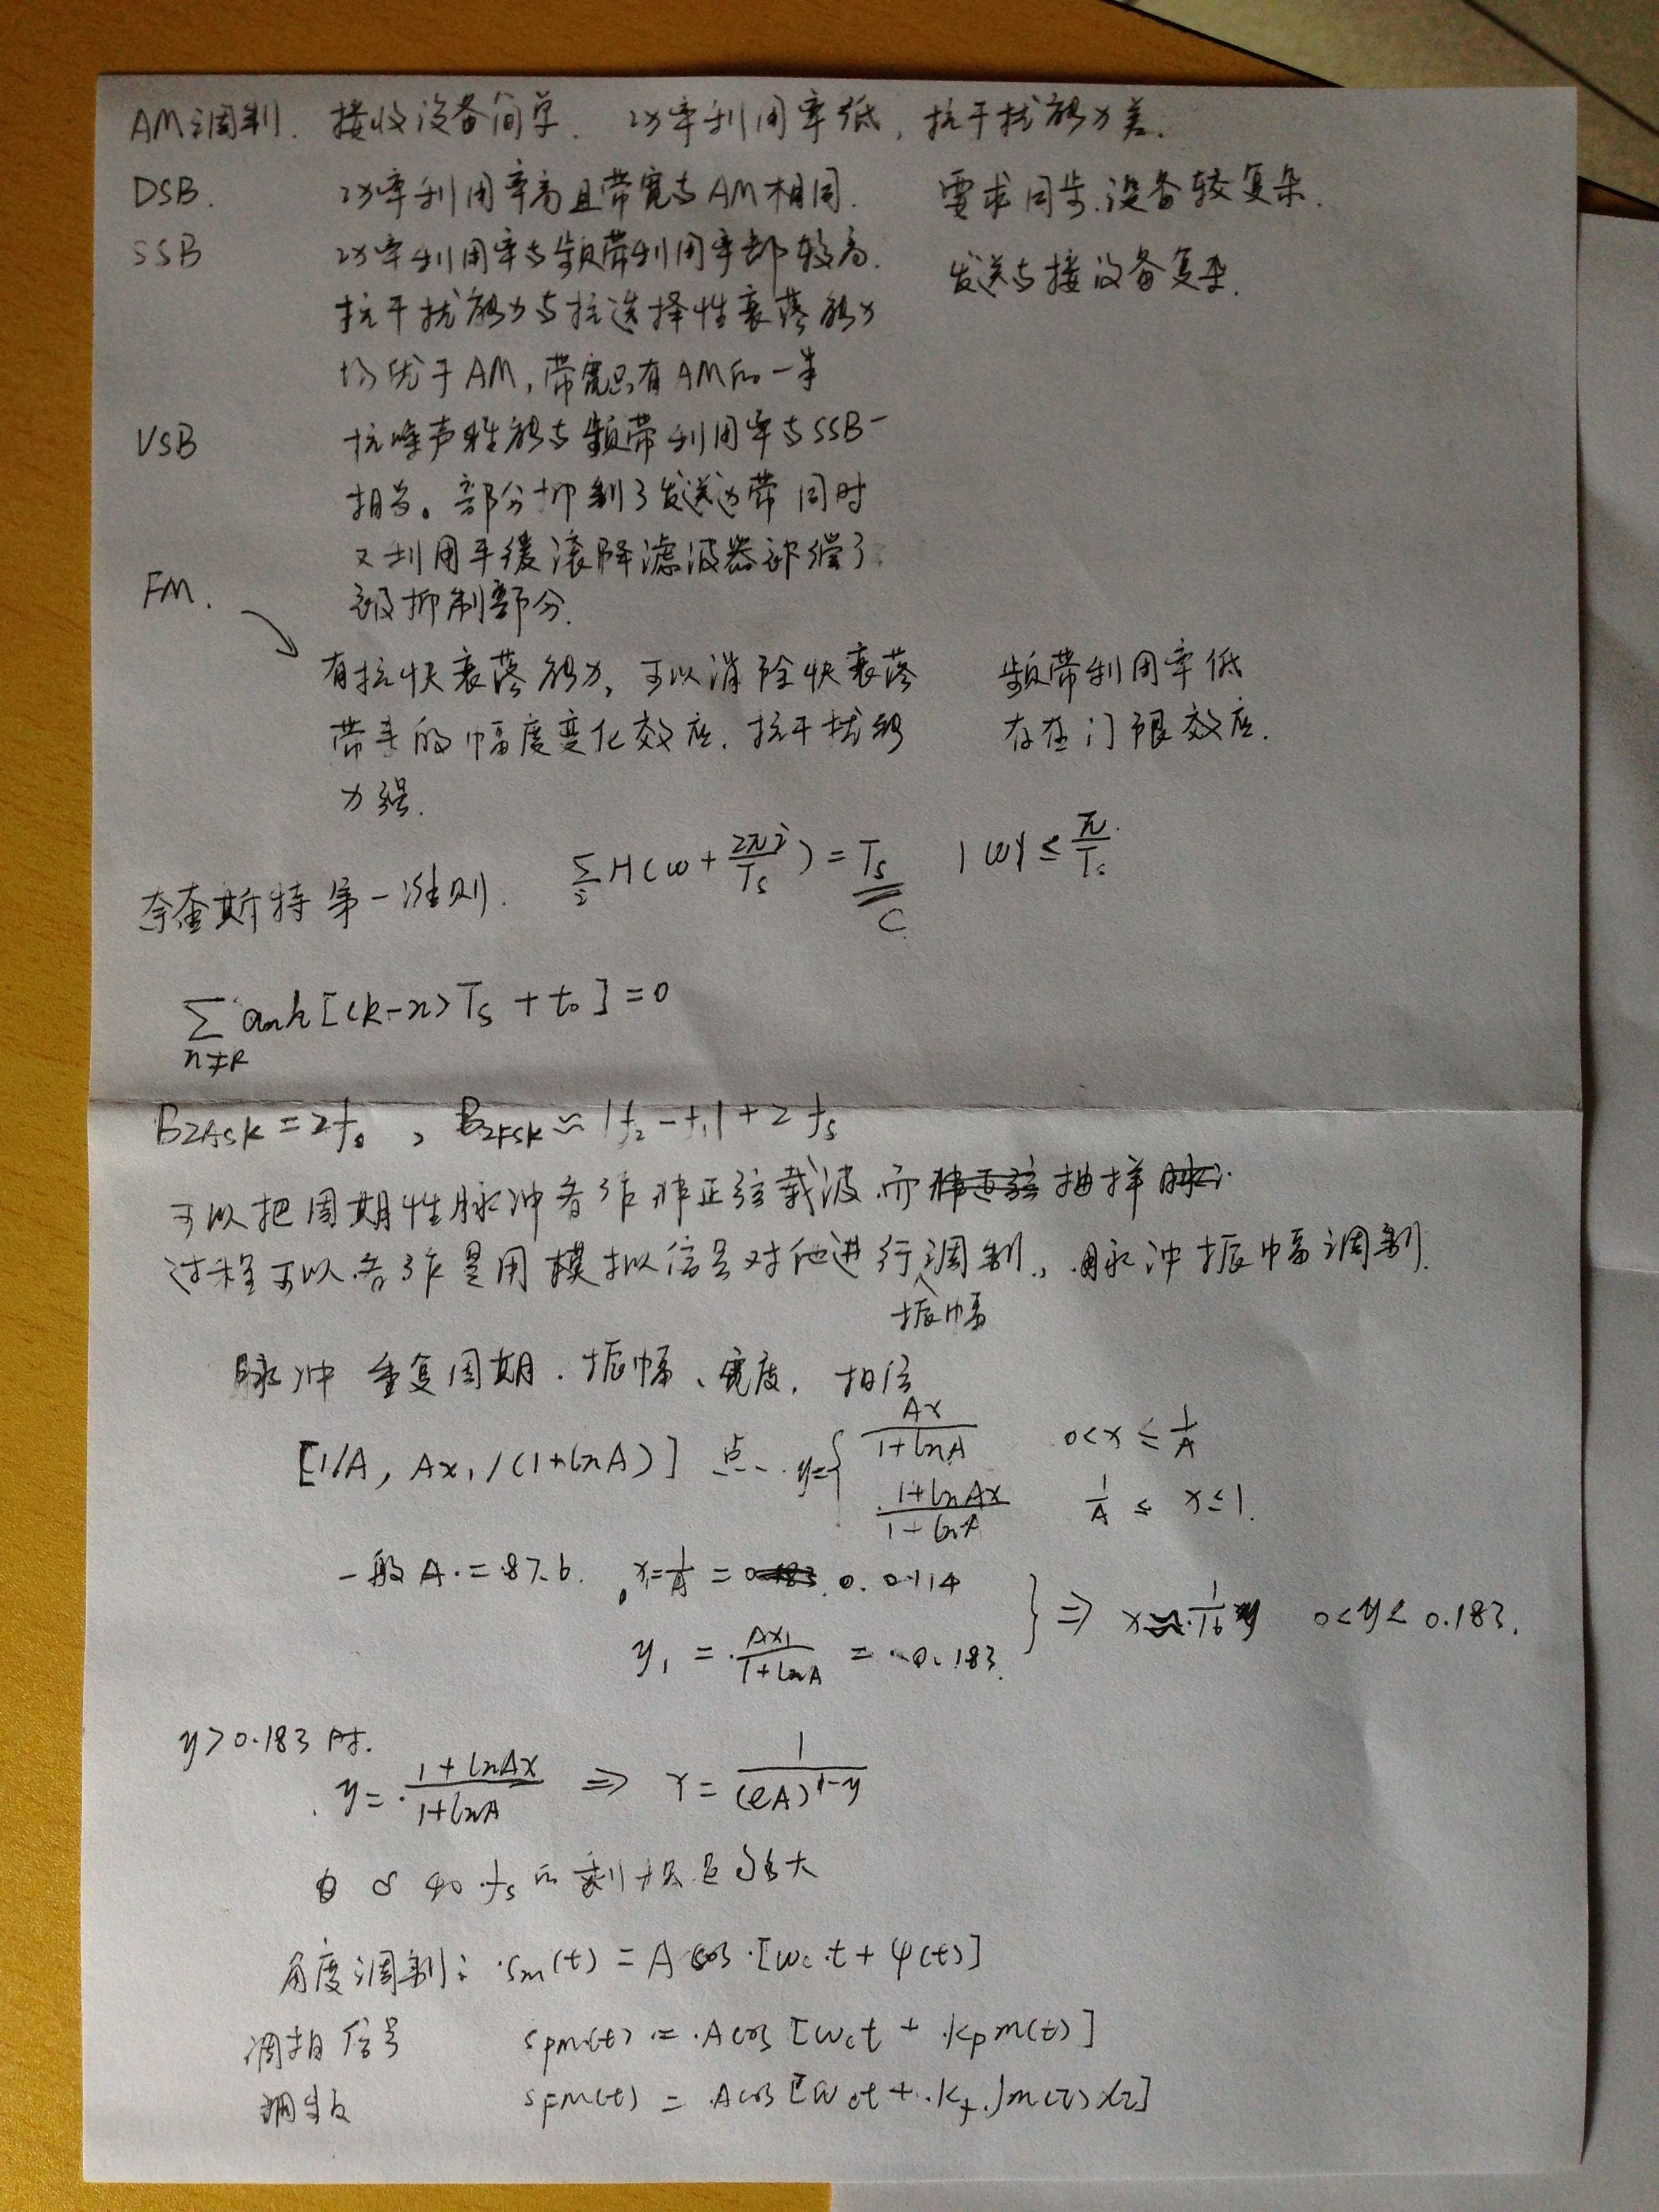 AM调制. 接收设备简单. 功率利用率低, 抗干扰能力差.
DSB. 功率利用率高且带宽与AM相同. 要求同步.设备较复杂.
SSB 功率利用率与频带利用率都较高. 发送与接设备复杂.
抗干扰能力与抗选择性衰落能力
均优于AM, 带宽只有AM的一半
VSB 抗噪声性能与频带利用率与SSB
相当。部分抑制了发送边带同时
又利用平缓滚降滤波器补偿了
FM. 被抑制部分.
有抗快衰落能力, 可以消除快衰落 频带利用率低
带来的幅度变化效应. 抗干扰能 存在门限效应.
力强.
奈奎斯特第一准则. ∑_i H(ω + 2πi/T_s) = T_s |ω| ≤ π/T_s
C
∑_{n≠k} a_n h[(k-n)T_s + t_0] = 0
B_2ASK = 2f_s , B_2FSK ≈ |f_2 - f_1| + 2f_s
可以把周期性脉冲看作非正弦载波.而抽样
过程可以看作是用模拟信号对他进行调制., 脉冲振幅调制.
振幅
脉冲 重复周期. 振幅、宽度. 相位
[1/A, Ax_1/(1+lnA)] 点. y={ Ax/(1+lnA) 0<x≤1/A
(1+lnAx)/(1+lnA) 1/A ≤ x≤1.
一般A = 87.6. x_1=1/A = 0.0114
y_1 = Ax_1/(1+lnA) = 0.183. } ⇒ x≈1/16 y 0<y< 0.183.
y>0.183时.
y = (1+lnAx)/(1+lnA) ⇒ x = 1/(eA)^{1-y}
角度调制: s_m(t) = A cos[ω_c t + φ(t)]
调相信号 s_PM(t) = A cos[ω_c t + k_p m(t)]
调频 s_FM(t) = A cos[ω_c t + k_f ∫m(τ)dτ]